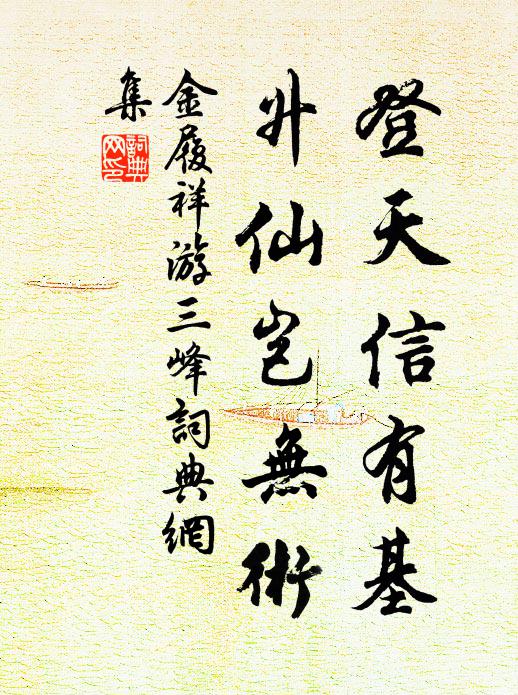 登天信有基
升仙岂無術
金履祥游三峰詞典網
集
詞典
网印